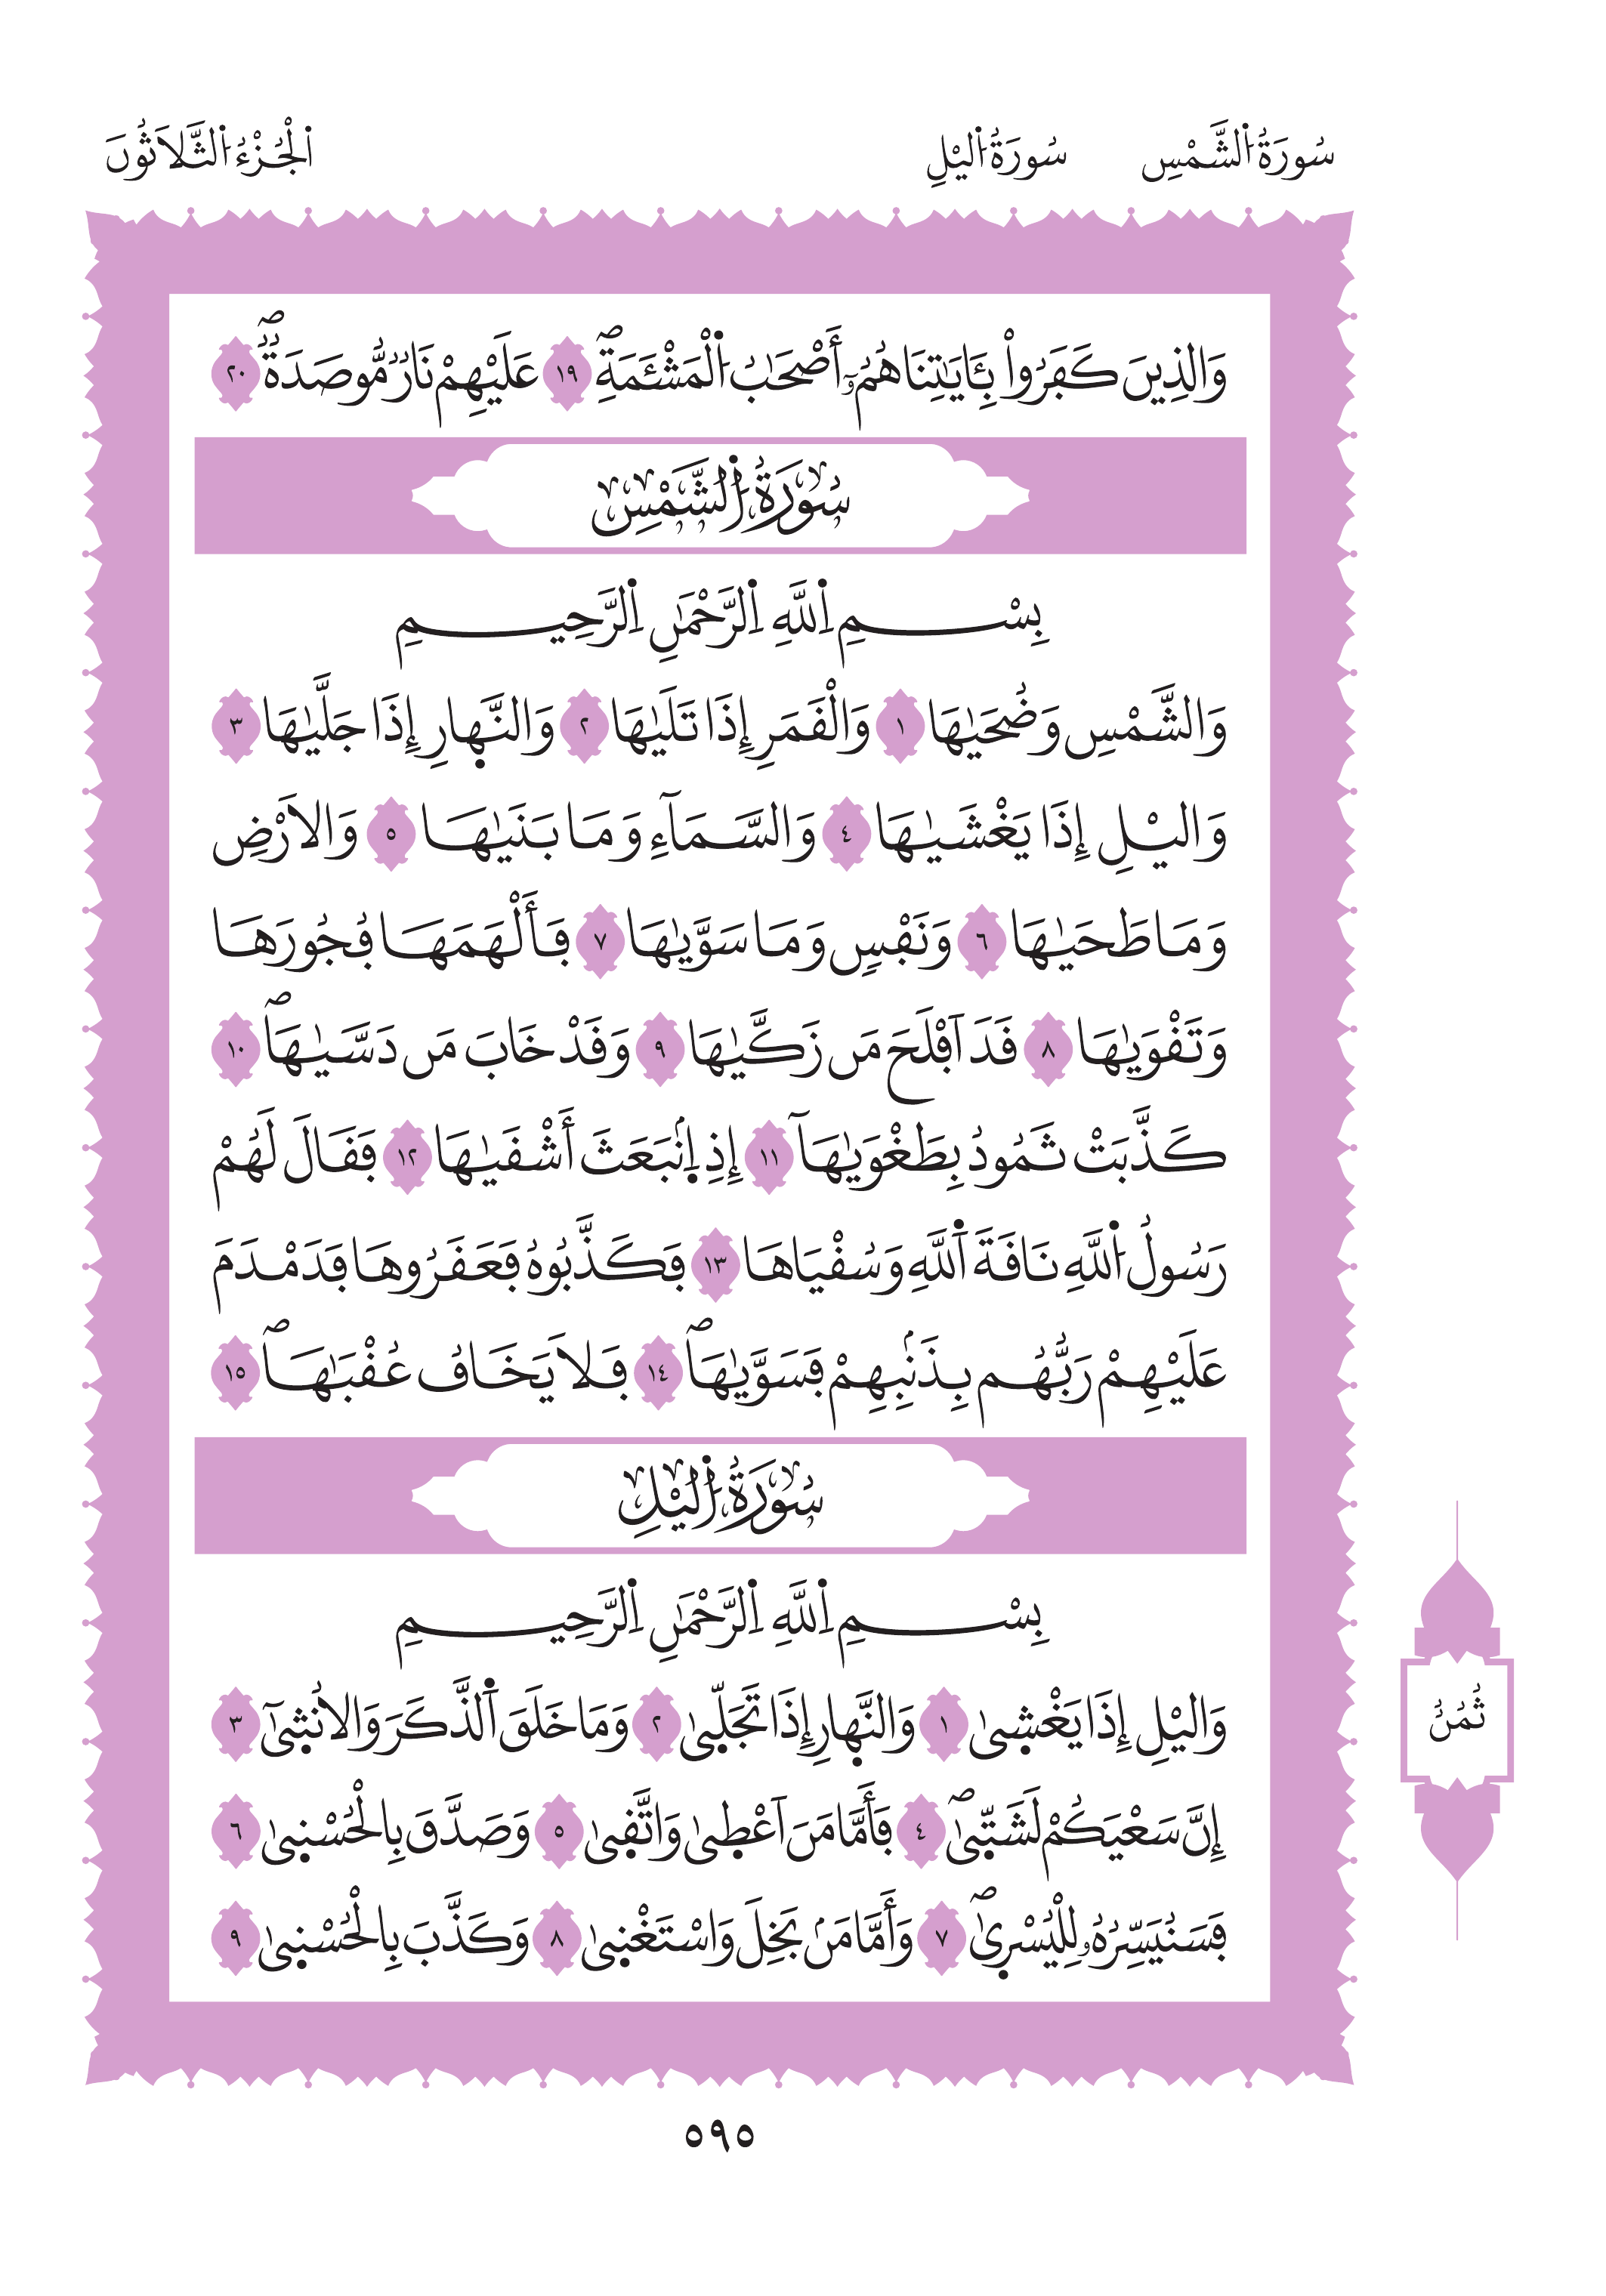 سُورَةُ اُ۬لشَّمْسِ سُورَةُ اُ۬ليْلِ اِ۬لْجُزْءُ اُ۬لثَّلَاثُونَ
وَالذِينَ كَفَرُواْ بِـَٔايَٰتِنَا هُمُۥٓ أَصْحَٰبُ اُ۬لْمَشْـَٔمَةِۖ ١٩ عَلَيْهِمْ نَارٞ مُّوصَدَةٞۖ ٢٠
سُورَةُ اُ۬لشَّمْسِ
بِسْمِ اِ۬للَّهِ اِ۬لرَّحْمَٰنِ اِ۬لرَّحِيمِ
وَالشَّمْسِ وَضُحَيٰهَا ١ وَالْقَمَرِ إِذَا تَلَيٰهَا ٢ وَالنَّهارِ إِذَا جَلَّيٰهَا ٣
وَاليْلِ إِذَا يَغْشَيٰهَا ٤ وَالسَّمَآءِ وَمَا بَنَيٰهَا ٥ وَالَارْضِ
وَمَا طَحَيٰهَا ٦ وَنَفْسٖ وَمَا سَوَّيٰهَا ٧ فَأَلْهَمَهَا فُجُورَهَا
وَتَقْوَيٰهَا ٨ قَدَ اَفْلَحَ مَن زَكَّيٰهَا ٩ وَقَدْ خَابَ مَن دَسَّيٰهَاۖ ١٠
كَذَّبَتْ ثَمُودُ بِطَغْوَيٰهَآ ١١ إِذِ اِ۪نۢبَعَثَ أَشْقَيٰهَا ١٢ فَقَالَ لَهُمْ
رَسُولُ اُ۬للَّهِ نَاقَةَ اَ۬للَّهِ وَسُقْيَاهَا ١٣ فَكَذَّبُوهُ فَعَقَرُوهَا فَدَمْدَمَ
عَلَيْهِمْ رَبُّهُم بِذَنۢبِهِمْ فَسَوَّيٰهَاۖ ١٤ فَلَا يَخَافُ عُقْبَٰهَاۖ ١٥
سُورَةُ اُ۬ليْلِ
بِسْمِ اِ۬للَّهِ اِ۬لرَّحْمَٰنِ اِ۬لرَّحِيمِ
وَاليْلِ إِذَا يَغْش۪يٰ ١ وَالنَّه۪ارِ إِذَا تَجَلّ۪يٰ ٢ وَمَا خَلَقَ اَ۬لذَّكَرَ وَالُانث۪يٰٓ ٣
إِنَّ سَعْيَكُمْ لَشَتّ۪يٰۖ ٤ فَأَمَّا مَنَ اَعْط۪يٰ وَاتَّق۪يٰ ٥ وَصَدَّقَ بِالْحُسْن۪يٰ ٦
فَسَنُيَسِّرُهُۥ لِلْيُسْر۪يٰۖ ٧ وَأَمَّا مَنۢ بَخِلَ وَاسْتَغْن۪يٰ ٨ وَكَذَّبَ بِالْحُسْن۪يٰ ٩
ثُمُنٌ
٥٩٥